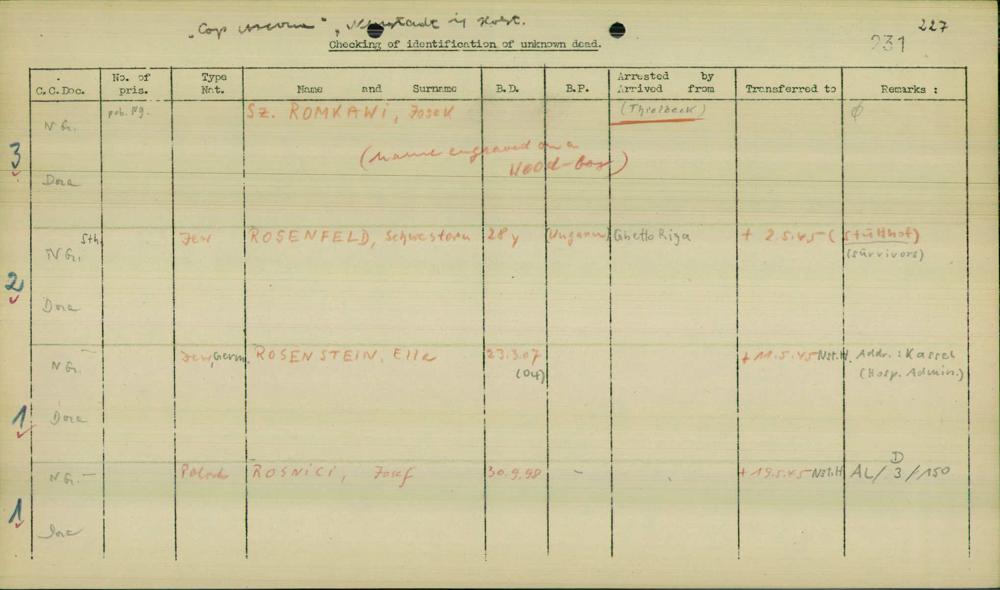 „Cap Arcona", Neustadt in Holst.
227
231
Checking of identification of unknown dead.
C.C.Doc. No. of pris. Type Nat. Name and Surname B.D. B.P. Arrested by Arrived from Transferred to Remarks :
3 N Gr. prob. Ng. Sz. ROMKAWI, Josek (Thielbeck) Ø
(Name engraved on a
Wood-box)
Dora
2 Sth. N Gr. Jew ROSENFELD, Schwestern 28 y (Ungarn) Ghetto Riga + 2.5.45 (Stutthof)
(survivors)
Dora
1 N Gr. – Jew, Germ. ROSENSTEIN, Ella 23.3.07 + 11.5.45 Nst.H. Addr.: Kassel
(04) (Hosp. Admin.)
Dora
1 N Gr. – ROSNICI, Josef 30.9.98 – + 19.5.45 Nst.H AL/ D 3/150
Dora